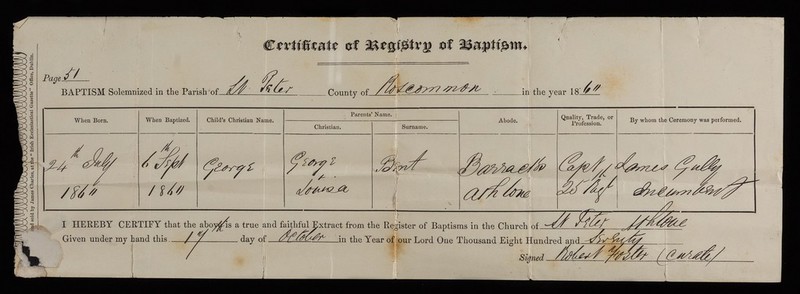 Certificate of Registry of Baptism.
Page 51
BAPTISM Solemnized in the Parish of St Peter County of Roscommon in the year 1860
When Born. When Baptized. Child's Christian Name. Parents' Name. Abode. Quality, Trade, or Profession. By whom the Ceremony was performed.
Christian. Surname.
24th July 1860
6th Sept 1860
George
George + Louisa
Brent
Barracks Athlone
Captn 25 Regt
James Gully Incumbent
I HEREBY CERTIFY that the above is a true and faithful Extract from the Register of Baptisms in the Church of St Peter Athlone
Given under my hand this 17 day of October in the Year of our Lord One Thousand Eight Hundred and Seventy
Signed Robert Foster (Curate)
sold by James Charles, at the "Irish Ecclesiastical Gazette" Office, Dublin.